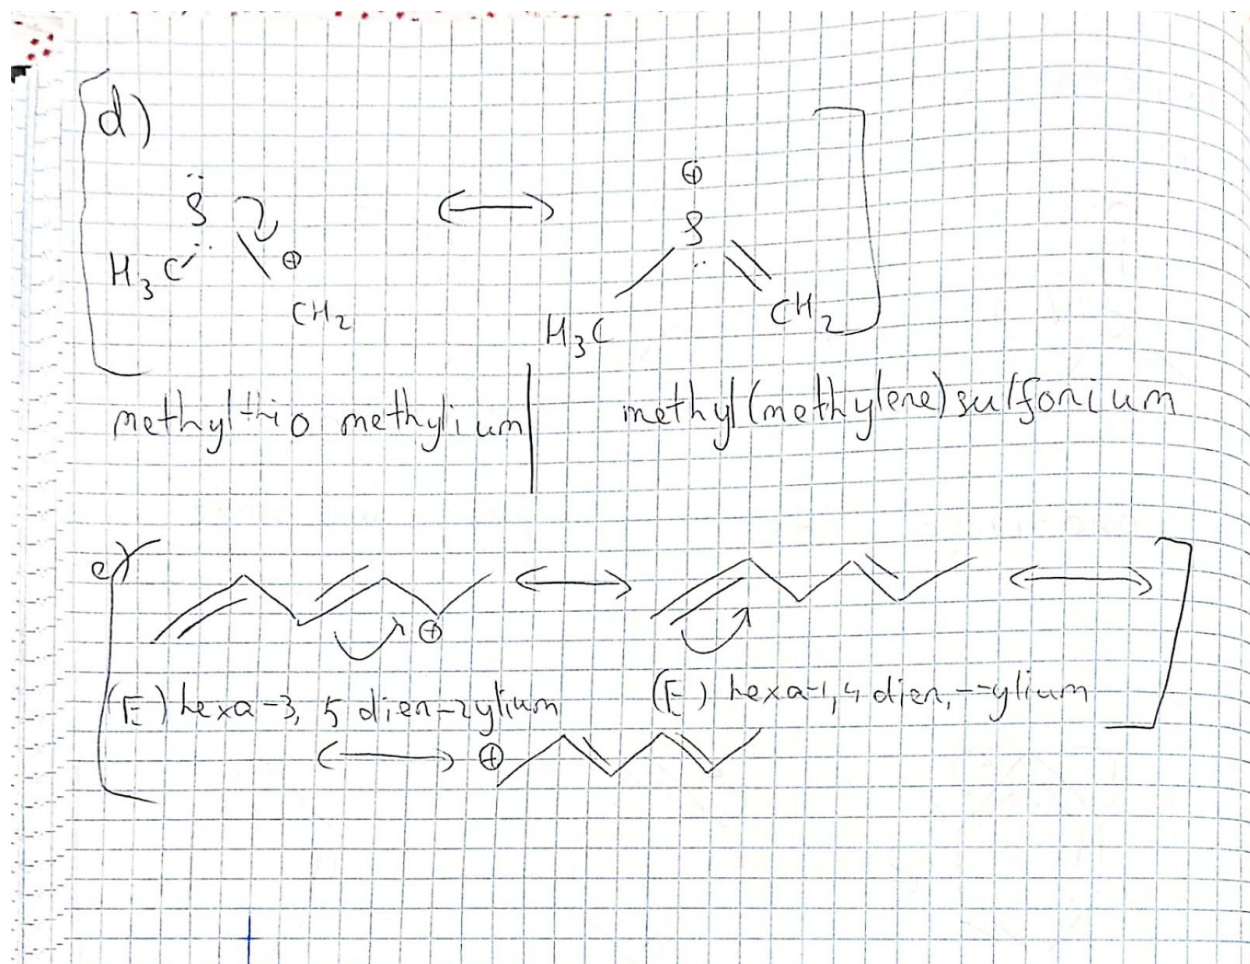 d)
S ⊕
H3C ⊕ CH2 ↔ S
H3C CH2
methylthio methylium | methyl(methylene)sulfonium
e)
↔ ↔
⊕
(E) hexa-3, 5 dien-2ylium (E) hexa-1,4 dien, -ylium
↔ ⊕